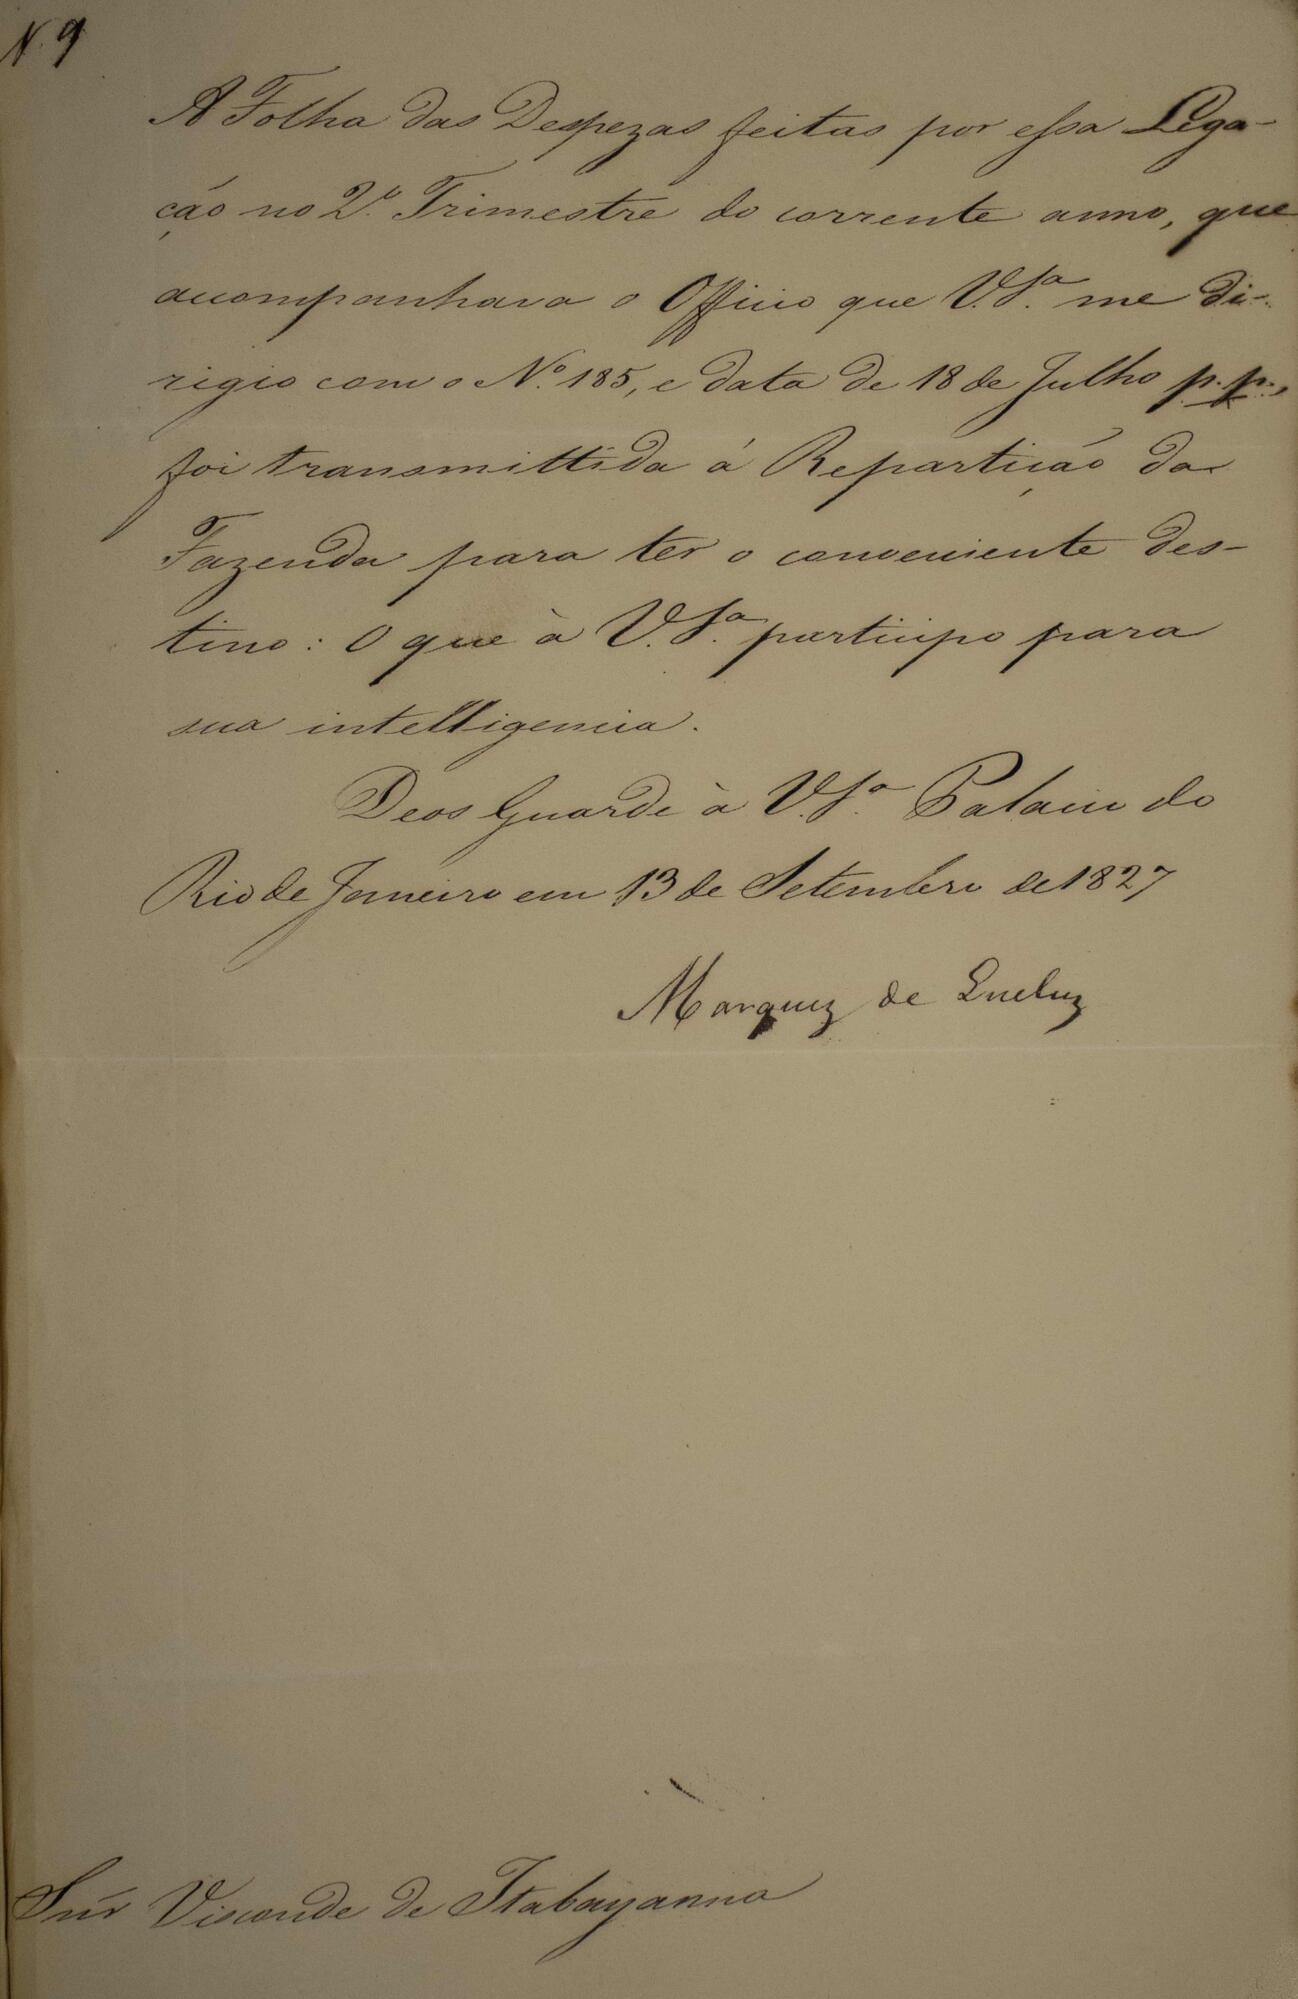 N. 9
A Folha das Despezas feitas por essa Lega-
ção no 2.º Trimestre do corrente anno, que
acompanhava o Officio que V. S.ª me di-
rigio com o N.º 185, e data de 18 de Julho p. p.,
foi transmittida á Repartição da
Fazenda para ter o conveniente des-
tino: O que à V. S.ª participo para
sua intelligencia.
Deos Guarde à V. S.ª Palacio do
Rio de Janeiro em 13 de Setembro de 1827
Marquez de Queluz
Snr̃ Visconde de Itabayanna